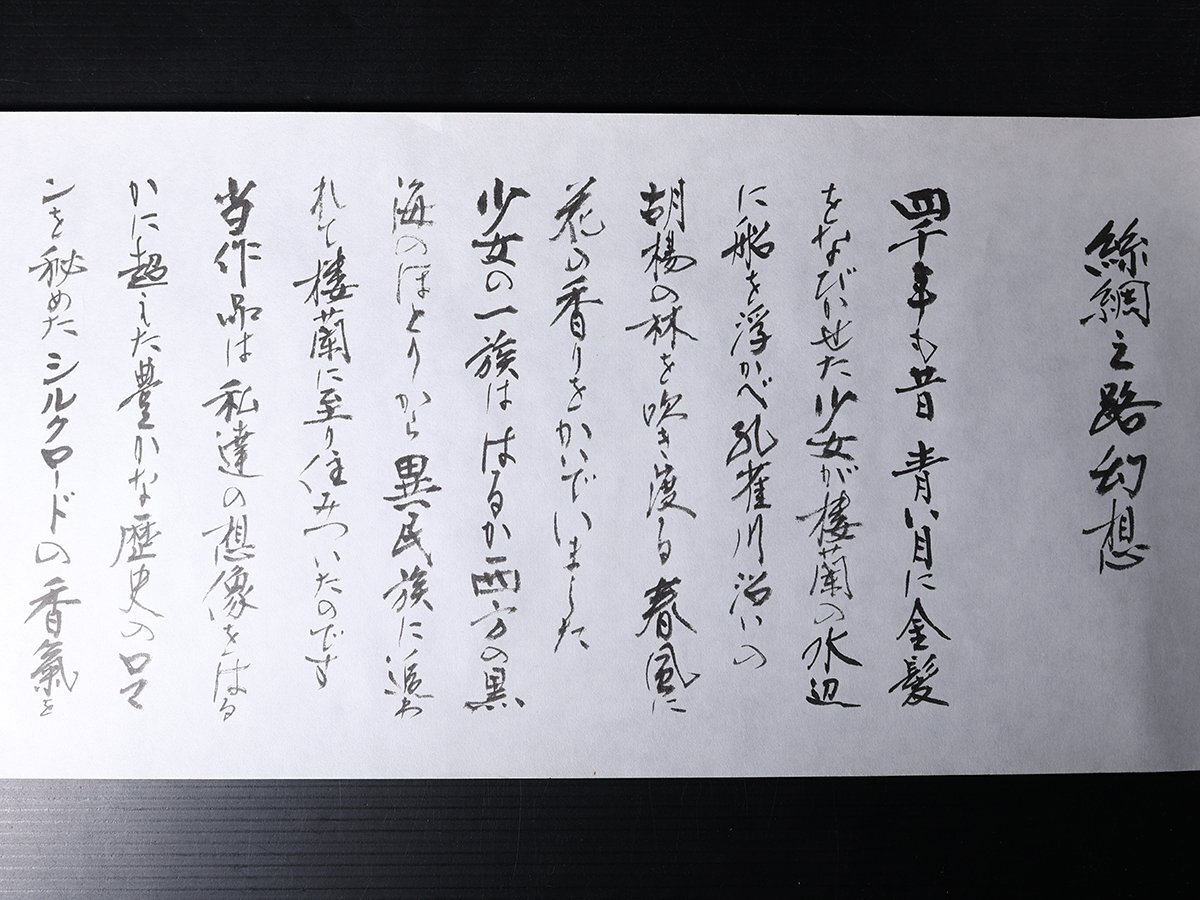 絲綢之路幻想
四千年も昔 青い目に金髪
をなびかせた少女が楼蘭の水辺
に船を浮かべ孔雀川沿いの
胡楊の林を吹き渡る春風に
花の香りをかいでいました
少女の一族ははるか西方の黒
海のほとりから異民族に追わ
れて楼蘭に至り住みついたのです
当作品は私達の想像をはる
かに超えた豊かな歴史のロマ
ンを秘めたシルクロードの香氣を